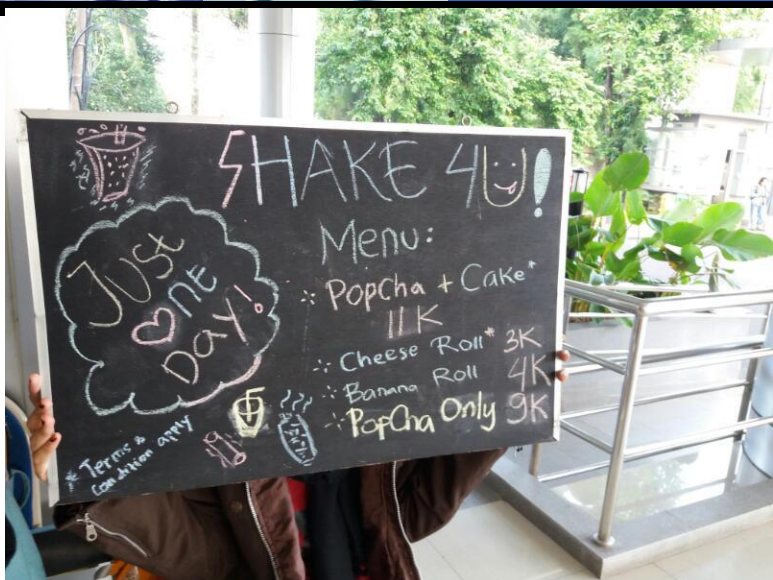 SHAKE 4U!
JUST
ONE
DAY!
Menu:
PopCha + Cake*
11K
Cheese Roll* 3K
Banana Roll 4K
PopCha Only 9K
* Terms &
Condition apply